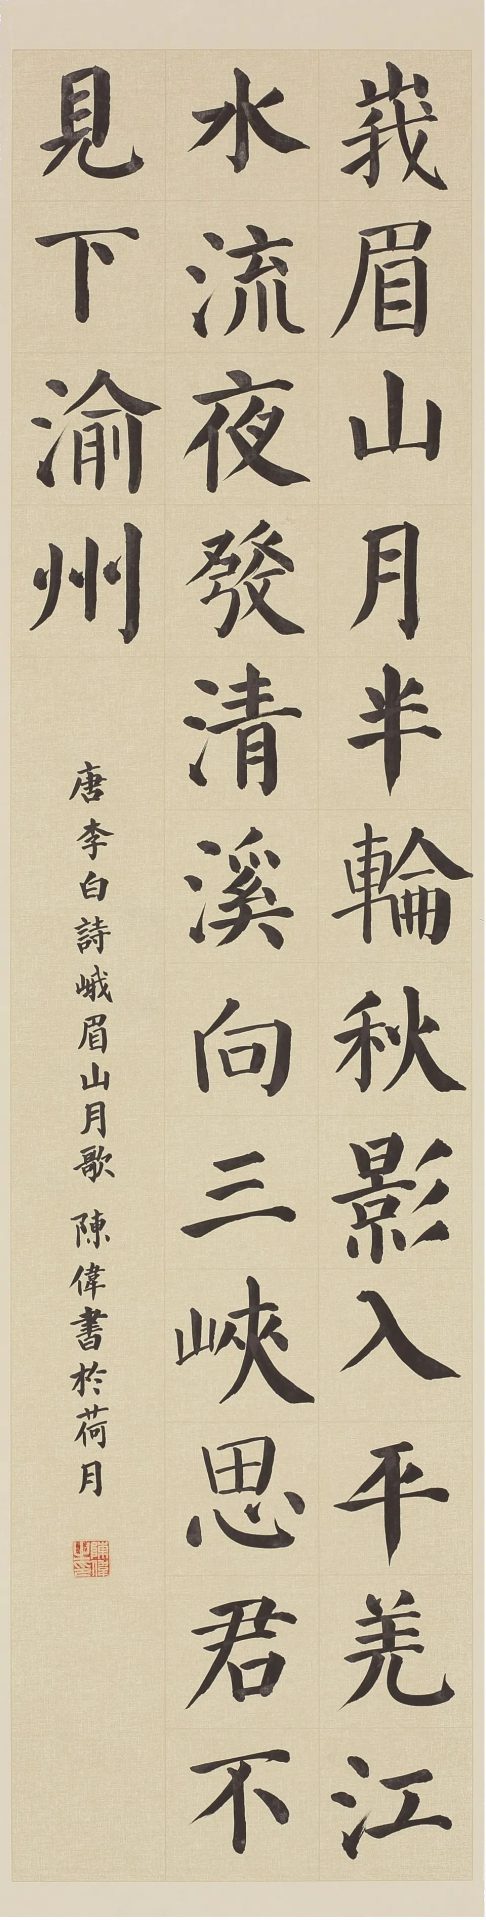 峩眉山月半輪秋影入平羌江
水流夜發清溪向三峽思君不
見下渝州
唐李白詩峨眉山月歌 陳偉書於荷月
陳偉之印